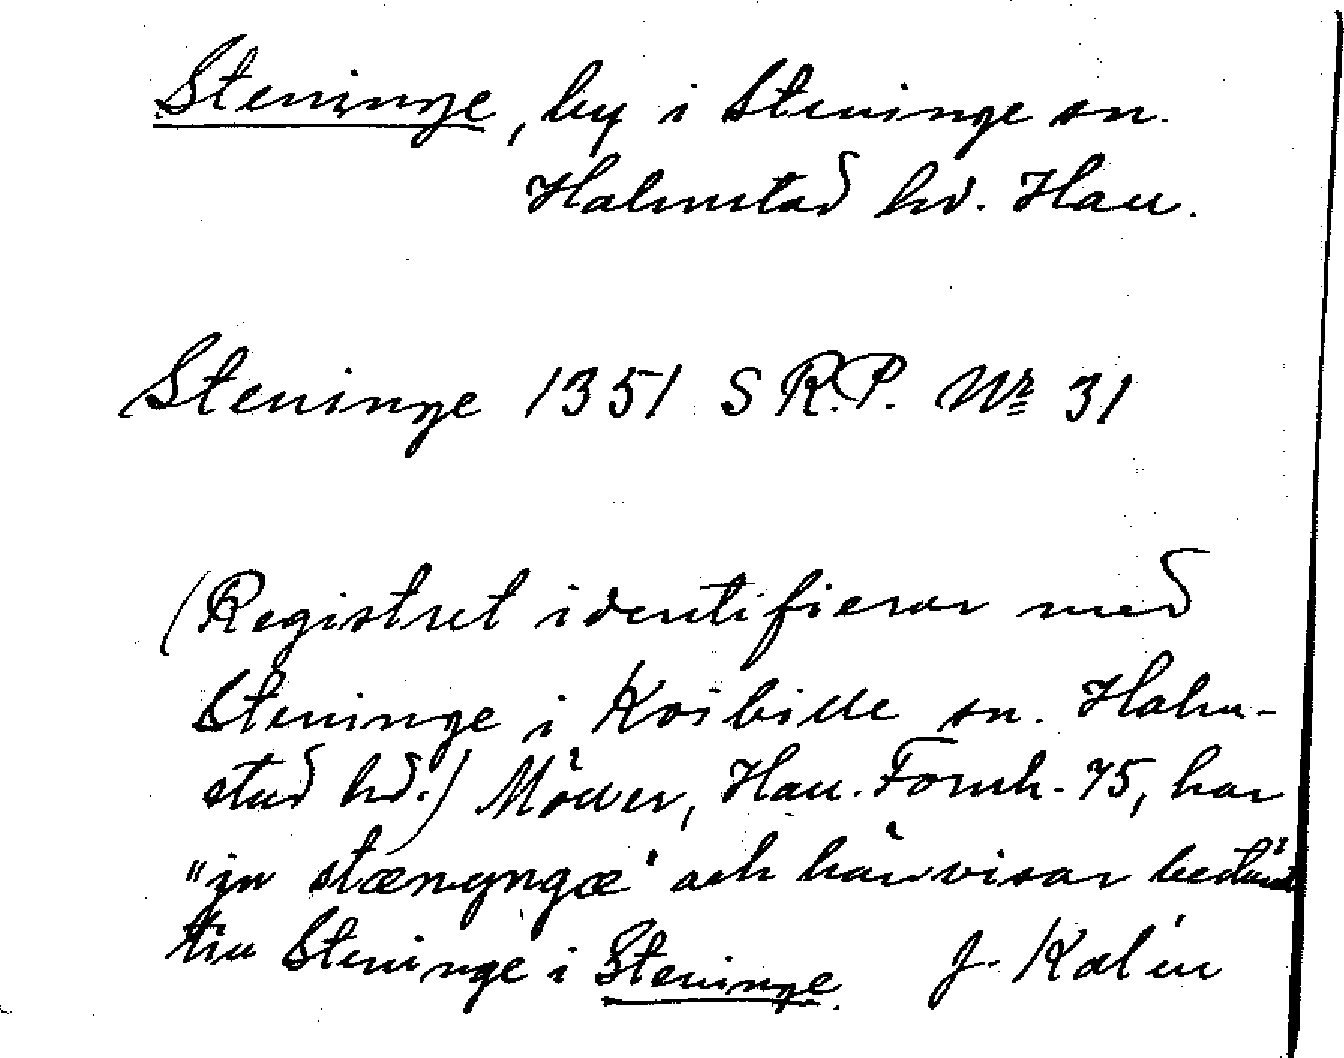 Steninge, by i Steninge sn.
Halmstad hd. Hall.
Steninge 1351 S R.P. Nr 31
(Registret identifierar med
Steninge i Kvibille sn. Halm-
stad hd.) Möller, Hall. Fornh. 75, har
"jn stænyngæ" och hänvisar bestämt
till Steninge i Steninge. J. Kalén